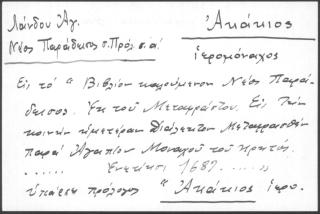 Λάνδου Ἀγ.
Νέος Παράδεισος σ. Πρόλ. σ. α΄
Ἀκάκιος
ἱερομόναχος
Εἰς τό "Βιβλίον καλούμενον Νέος Παρά-
δεισος. Ἐκ τοῦ Μεταφράστου. Εἰς τήν
κοινήν ἡμετέραν Διάλεκτον Μεταφρασθέν
παρά Ἀγαπίου Μοναχοῦ τοῦ Κρητός.
...... Ἐνετίησι 1687. ..... "
ὑπάρχει πρόλογος "Ἀκάκιος ἱερο.